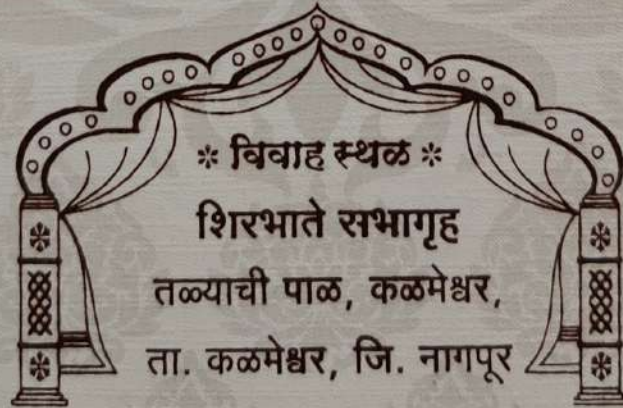 * विवाह स्थळ *
शिरभाते सभागृह
तळ्याची पाळ, कळमेश्वर,
ता. कळमेश्वर, जि. नागपूर